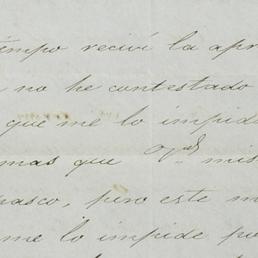 tiempo recivi la apr
no he contestado
que me lo impide
mas que mis
pasco, pero este m
me lo impide po